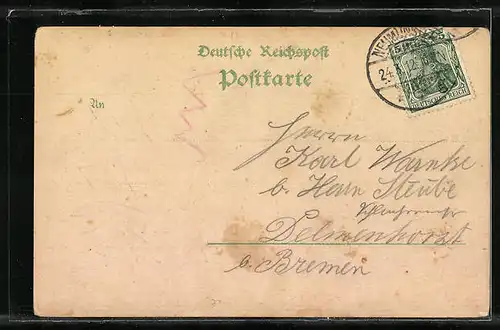 Deutsche Reichspost
Postkarte
An
NEUMÜNSTER
24.
12
DEUTSCHES REICH
Herrn
Karl Warnke
b. Herrn Steube
Delmenhorst
b. Bremen